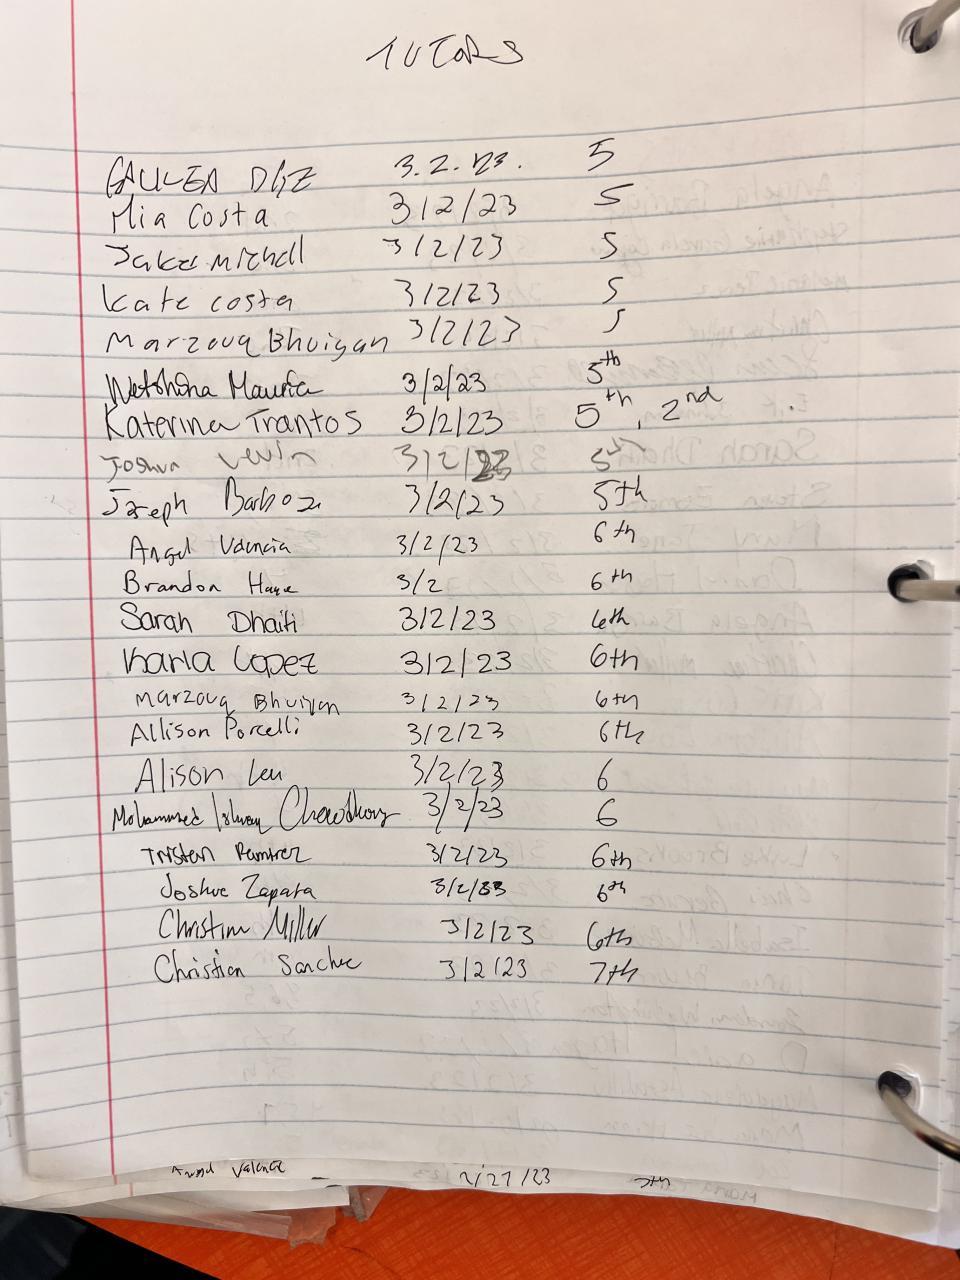 TUTORS
DIAZ 3.2.23. 5
Mia Costa 3/2/23 5
Jake Mitchell 3/2/23 5
Kate costa 3/2/23 5
Marzouq Bhuiyan 3/2/23 5
3/2/23 5th
Katerina Trantos 3/2/23 5th, 2nd
Joshua Levin 3/2/23 5th
Joseph Barboza 3/2/23 5th
Angel Valencia 3/2/23 6th
Brandon 3/2 6th
Sarah Dhaiti 3/2/23 6th
Karla Lopez 3/2/23 6th
Marzouq Bhuiyan 3/2/23 6th
Allison Porcelli 3/2/23 6th
Alison Leu 3/2/23 6
Mohammed Chowdhury 3/2/23 6
Tristan Ramirez 3/2/23 6th
Joshue Zapata 3/2/23 6th
Miller 3/2/23 6th
Christian 3/2/23 7th
Angel Valencia 2/27/23 7th